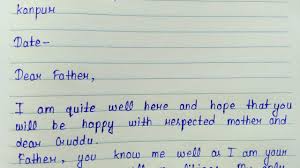 Kanpur
Date-
Dear Father,
I am quite well here and hope that you
will be happy with respected mother and
dear Guddu.
Father, you know me well as I am your